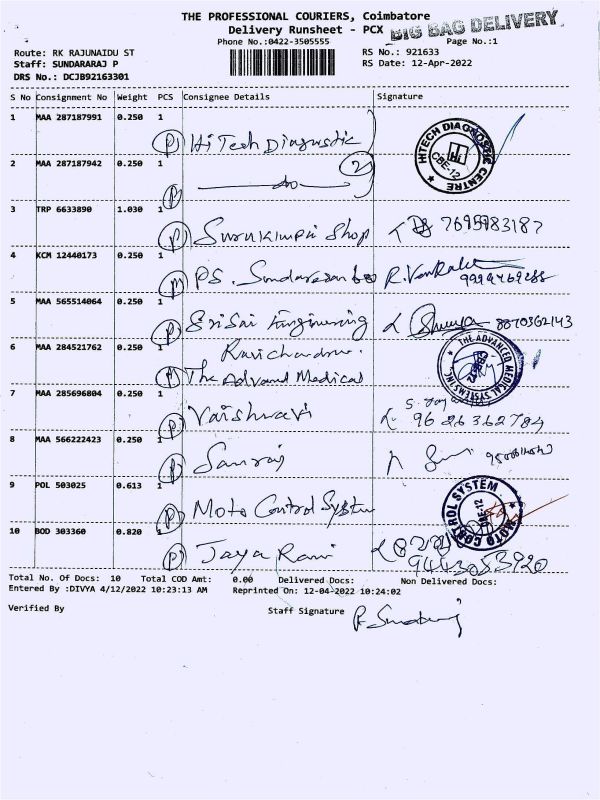 THE PROFESSIONAL COURIERS, Coimbatore
Delivery Runsheet - PCX
BIG BAG DELIVERY
Phone No.:0422-3505555
Page No.:1
Route: RK RAJUNAIDU ST
RS No.: 921633
Staff: SUNDARARAJ P
RS Date: 12-Apr-2022
DRS No.: DCJB92163301
S No Consignment No Weight PCS Consignee Details Signature
1 MAA 287187991 0.250 1
P Hi Tech Diagnostic
HITECH DIAGNOSTIC CENTRE CBE-12
2 MAA 287187942 0.250 1
P do 2
3 TRP 6633890 1.030 1
P Shop
4 KCM 12440173 0.250 1
PS. R.
5 MAA 565514064 0.250 1
P Sri Sai Engineering 8870362143
6 MAA 284521762 0.250 1
Ravichandran
The Advand Medical
THE ADVANCED MEDICAL SYSTEMS INC.
7 MAA 285696804 0.250 1
P Vaishnavi 9626362784
8 MAA 566222423 0.250 1
P
9 POL 503025 0.613 1
P Moto Control System
MOTO CONTROL SYSTEM CBE-12
10 BOD 303360 0.820 1
P Jaya Ram
Total No. Of Docs: 10 Total COD Amt: 0.00 Delivered Docs: Non Delivered Docs:
Entered By :DIVYA 4/12/2022 10:23:13 AM Reprinted On: 12-04-2022 10:24:02
Verified By Staff Signature